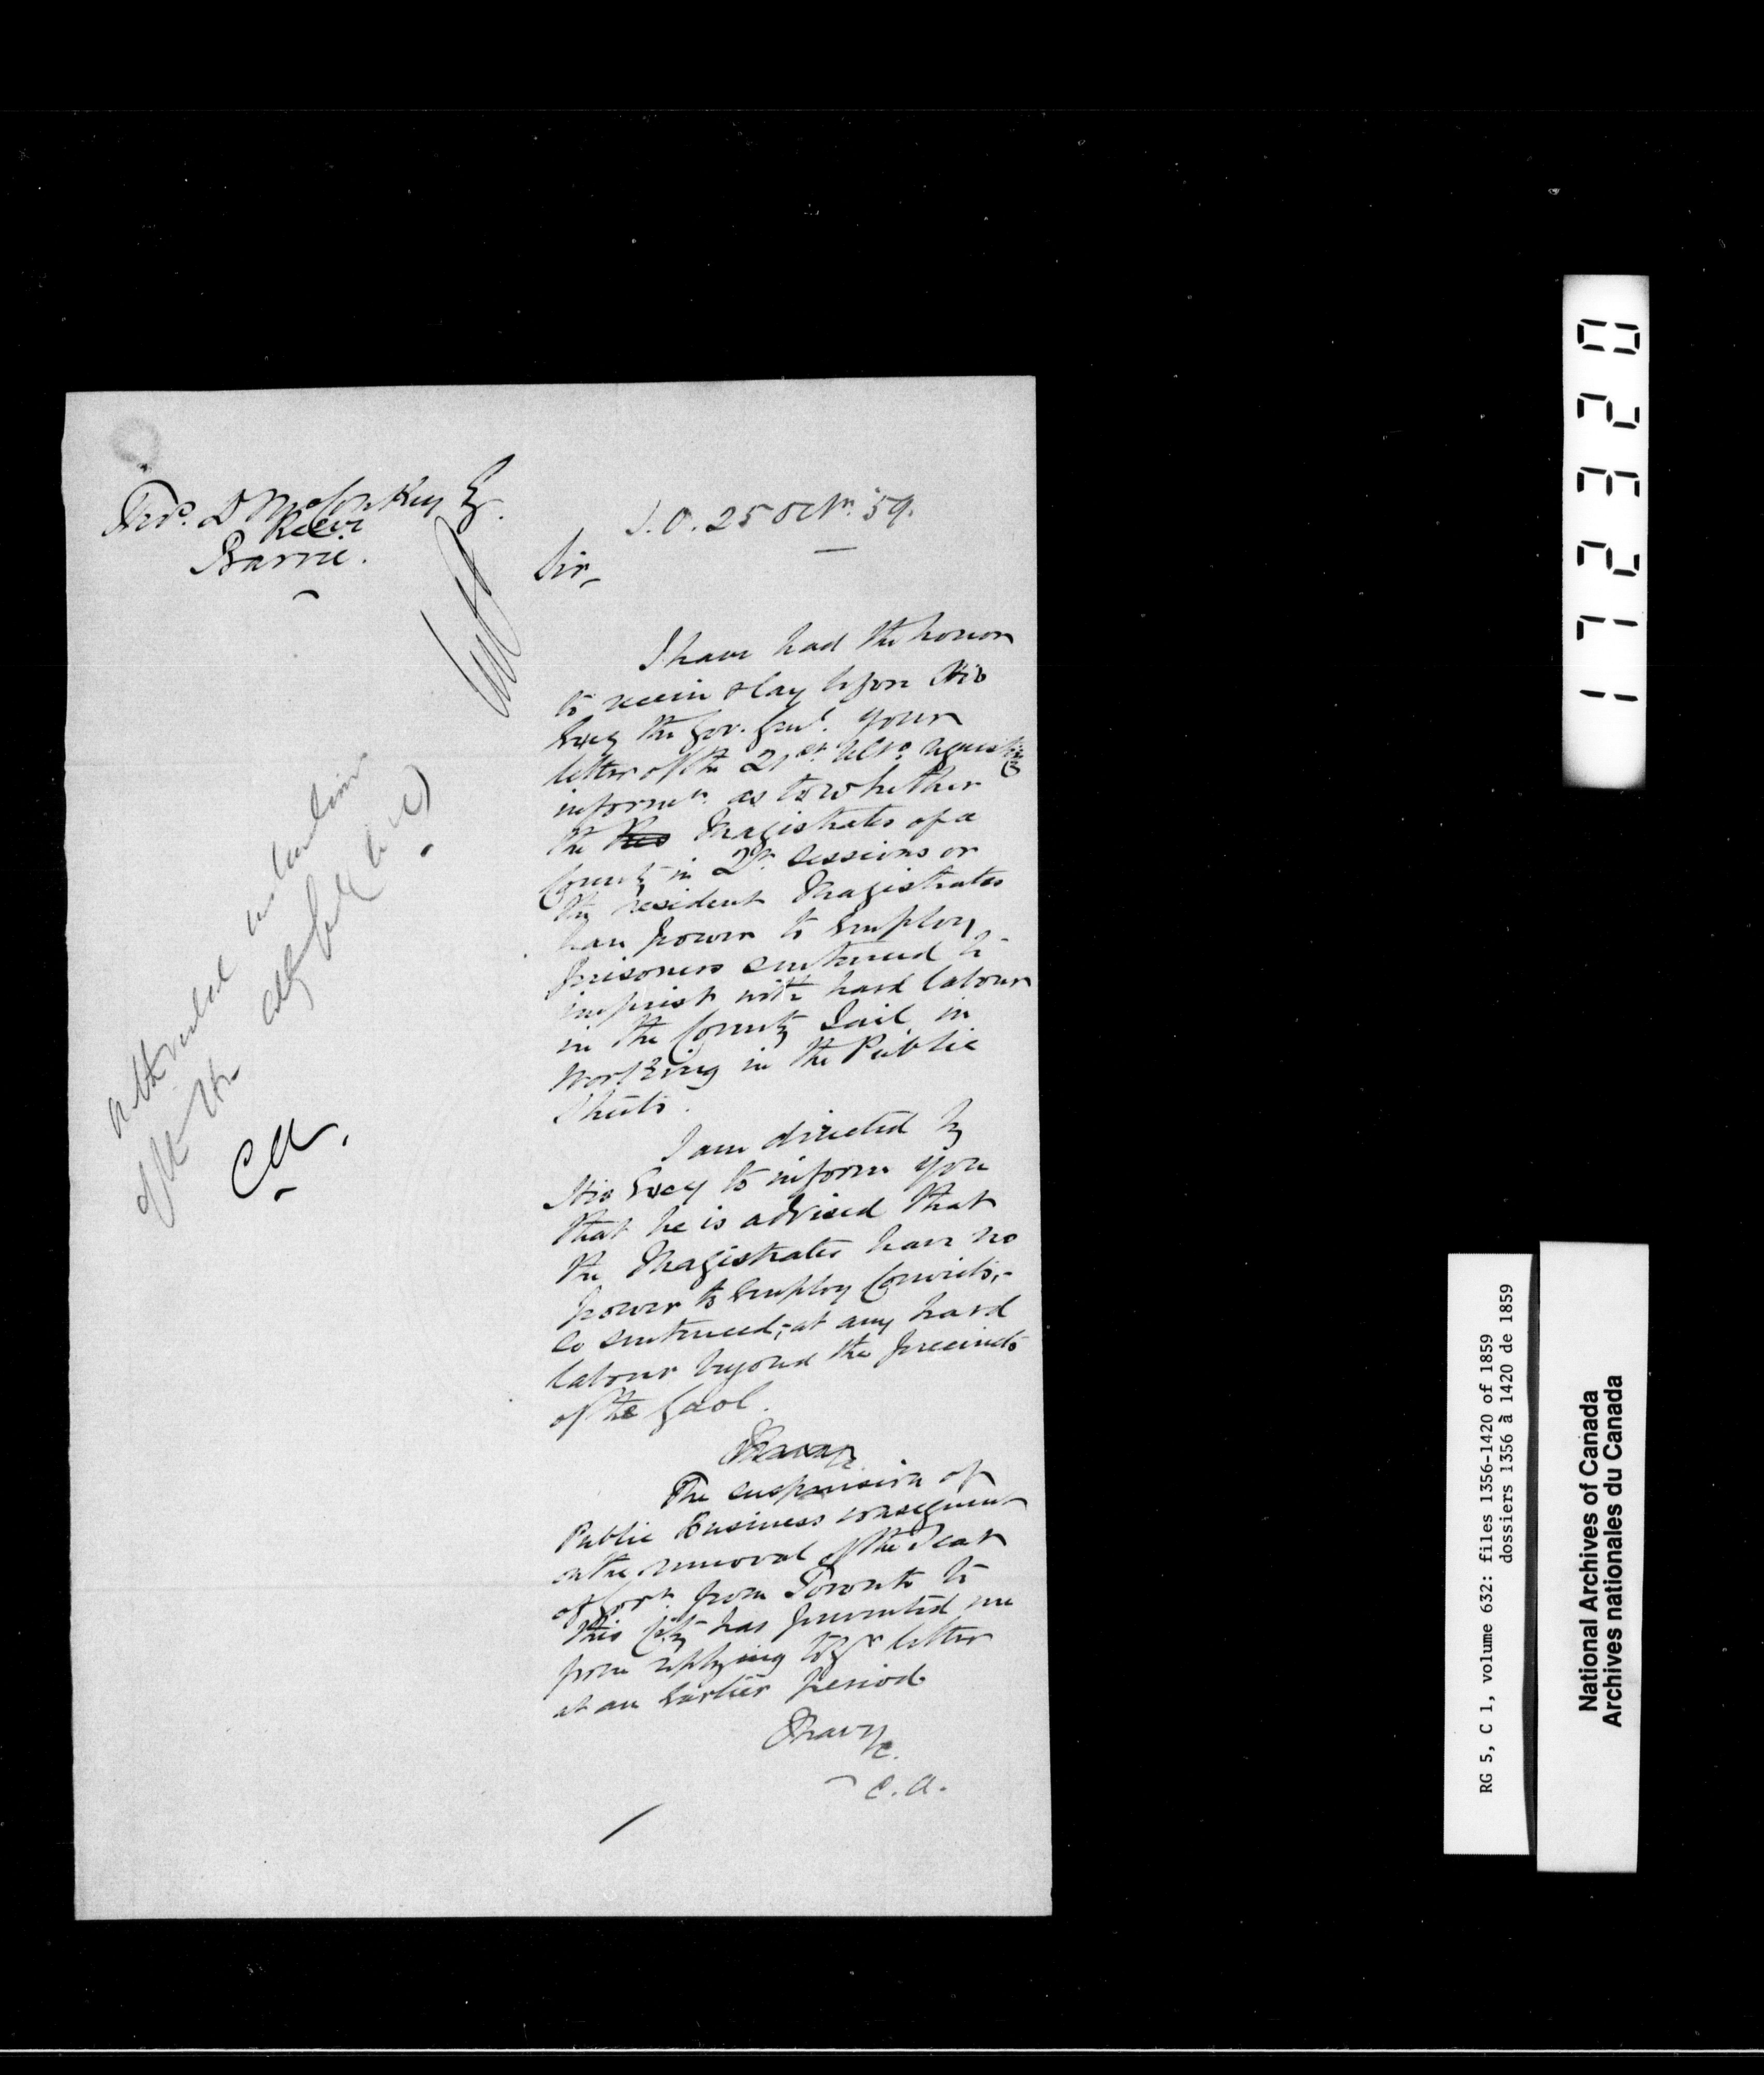 Thos. D McConkey Eq.
Reeve
Barrie.
S.O. 25 Octr. '59.
Sir,
I have had the honor
to receive & lay before His
Excy the Gov. Genl. your
letter of the 21st ulto. requesting
informn. as to whether
the Magistrates of a
County in Qr. Sessions or
the resident Magistrates
have power to employ
prisoners sentenced to
imprist with hard labour
in the County Jail, in
working in the Public
Streets.
I am directed by
His Excy to inform you
that he is advised that
the Magistrates have no
power to employ Convicts,-
so sentenced,- at any hard
labour beyond the precincts
of the Gaol.
The suspension of
Public Business consequent
on the removal of the Seat
of Govt. from Toronto to
this City has prevented me
from replying to yr letter
at an earlier period
I have &c.
C.A.
1 7 2 3 2 0
RG 5, C 1, volume 632: files 1356-1420 of 1859
dossiers 1356 à 1420 de 1859
National Archives of Canada
Archives nationales du Canada